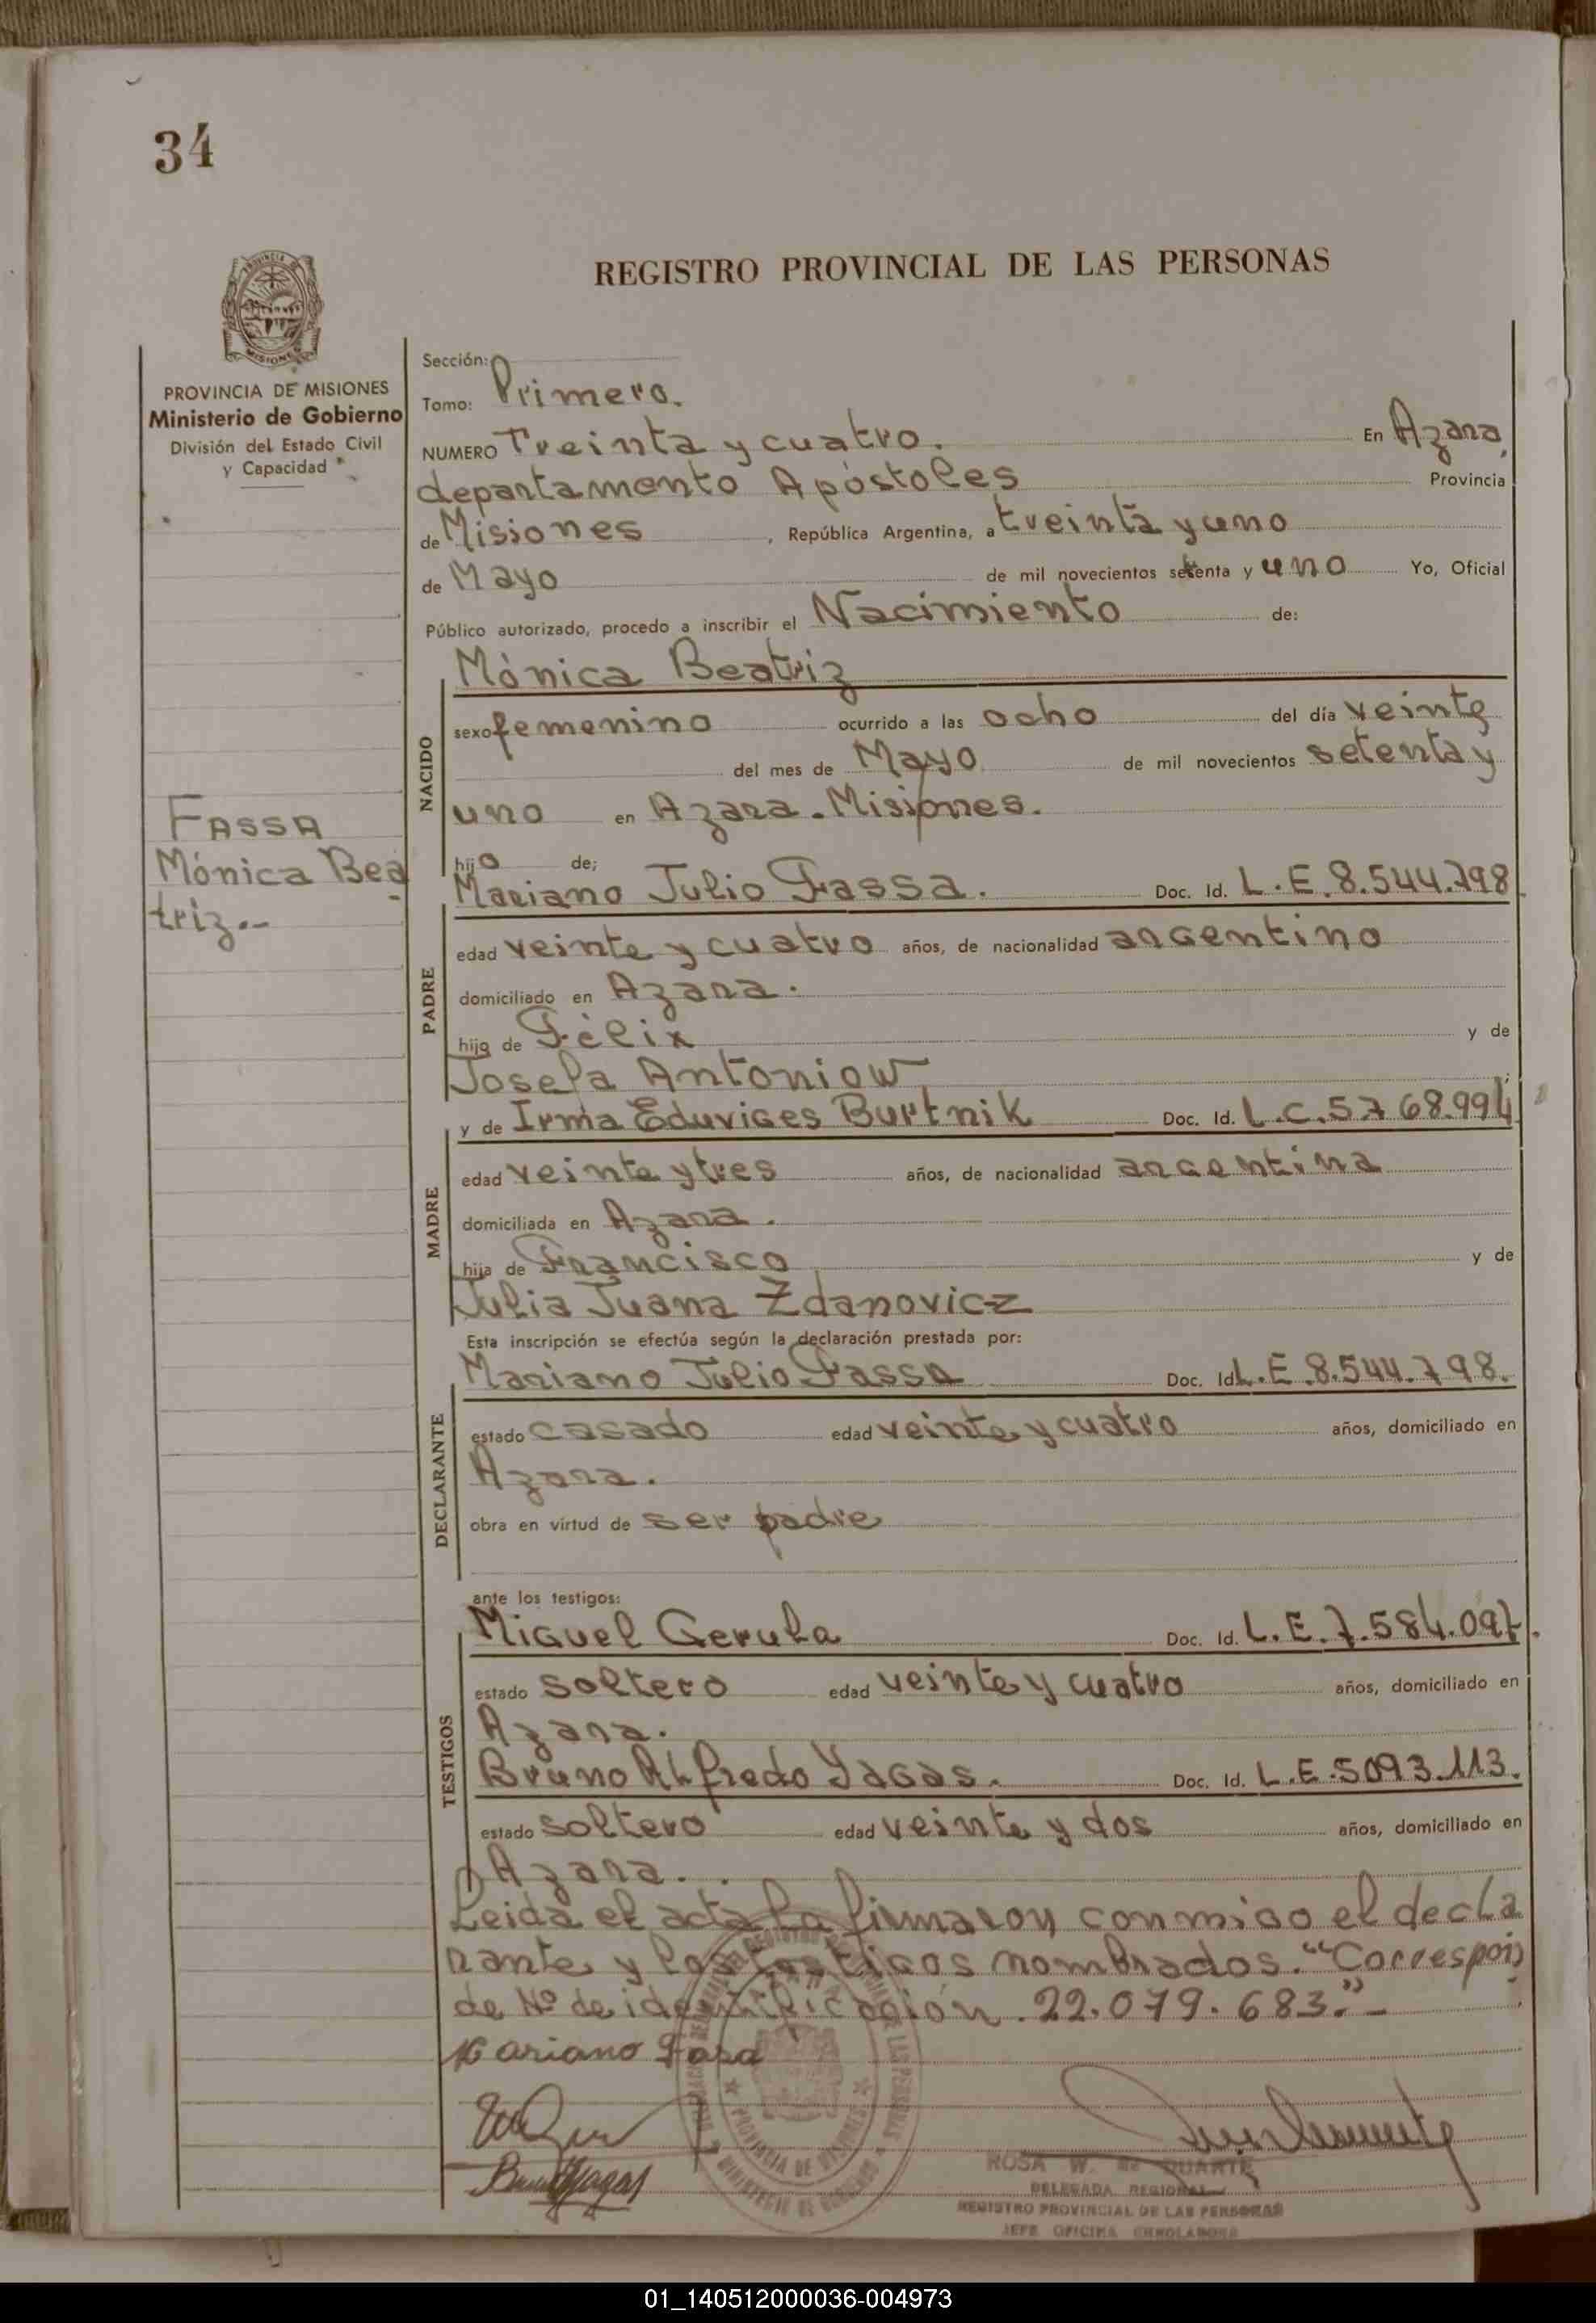 34
REGISTRO PROVINCIAL DE LAS PERSONAS
PROVINCIA DE MISIONES
Ministerio de Gobierno
División del Estado Civil
y Capacidad
Fassa
Mónica Bea
triz.-
Sección:
Tomo: Primero.
NUMERO Treinta y cuatro. En Azara,
departamento Apóstoles Provincia
de Misiones, República Argentina, a treinta y uno
de Mayo de mil novecientos setenta y uno Yo, Oficial
Público autorizado, procedo a inscribir el Nacimiento de:
Mónica Beatriz
NACIDO
sexo femenino ocurrido a las ocho del día veinte
del mes de Mayo de mil novecientos setenta y
uno en Azara. Misiones.
hijo de;
Mariano Julio Fassa. Doc. Id. L.E. 8.544.798
PADRE
edad veinte y cuatro años, de nacionalidad argentino
domiciliado en Azara.
hijo de Félix y de
Josefa Antoniow
y de Irma Eduviges Burtnik Doc. Id. L.C. 5768.994
MADRE
edad veinte y tres años, de nacionalidad argentina
domiciliada en Azara.
hija de Francisco y de
Julia Juana Zdanovicz
Esta inscripción se efectúa según la declaración prestada por:
Mariano Julio Fassa Doc. Id. L.E. 8.544.798.
DECLARANTE
estado casado edad veinte y cuatro años, domiciliado en
Azara.
obra en virtud de ser padre
ante los testigos:
Miguel Gerula Doc. Id. L.E. 7.584.097.
TESTIGOS
estado soltero edad veinte y cuatro años, domiciliado en
Azara.
Bruno Alfredo Yagas. Doc. Id. L.E. 5093.113.
estado soltero edad veinte y dos años, domiciliado en
Azara.
Leida el acta la firmaron conmigo el decla
rante y los testigos nombrados. "Correspon
de Nº de identificación 22.079.683."-
Mariano Fasa
ROSA W. de DUARTE
DELEGADA REGIONAL
REGISTRO PROVINCIAL DE LAS PERSONAS
JEFE OFICINA ENROLADORA
01_140512000036-004973